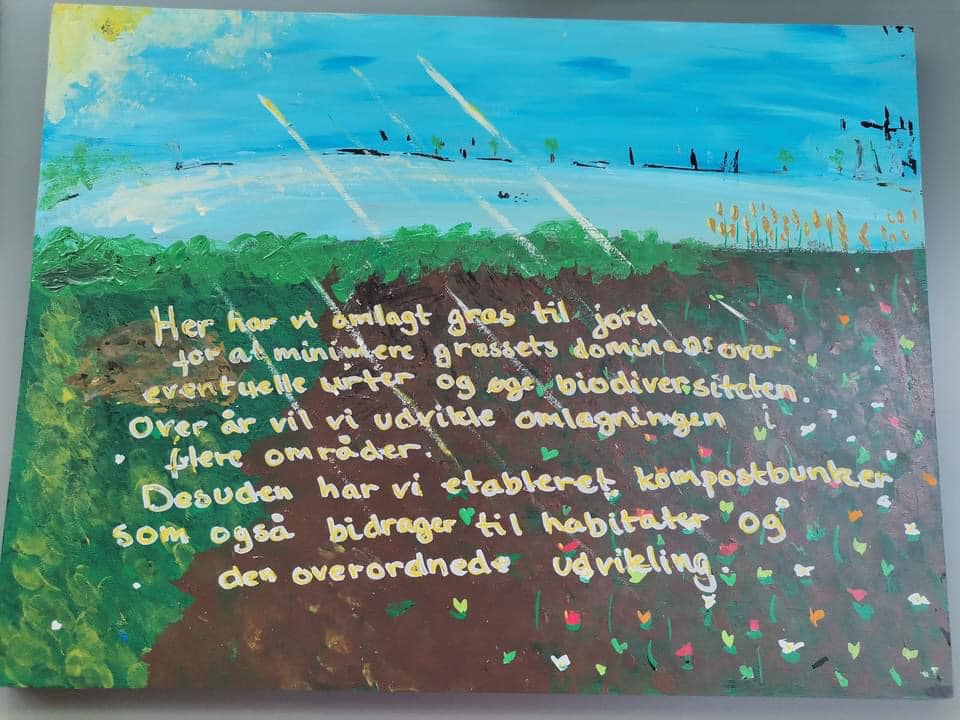 Her har vi omlagt græs til jord
for at minimere græssets dominans over
eventuelle urter og øge biodiversiteten.
Over år vil vi udvikle omlægningen i
flere områder.
Desuden har vi etableret kompostbunker
som også bidrager til habitater og
den overordnede udvikling.